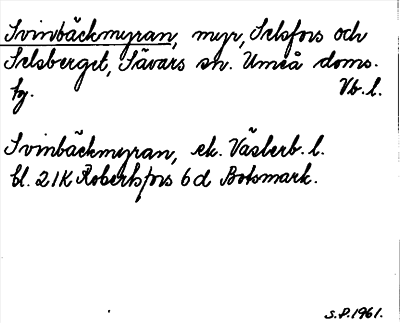 Svinbäckmyran, myr, Selsfors och
Selsberget, Sävars sn. Umeå doms.
hg. Vb. l.
Svinbäckmyran, ek. Västerb. l.
bl. 21K Robertsfors 6d Botsmark.
S.P. 1961.